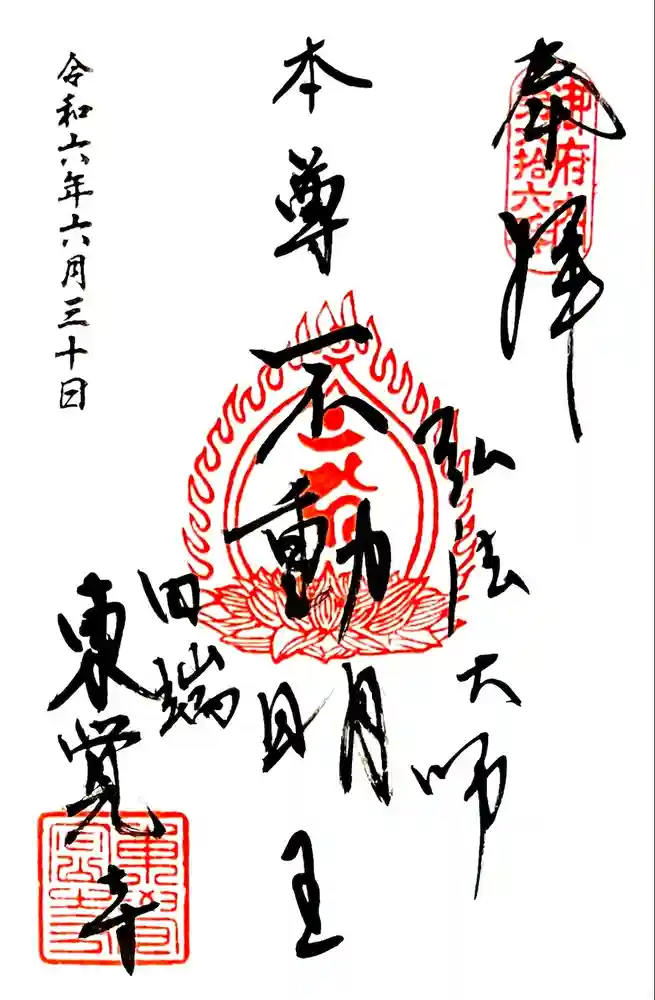 奉拝
御府内
第六拾六番
弘法大師
本尊
不動明王
田端
東覚寺
令和六年六月三十日